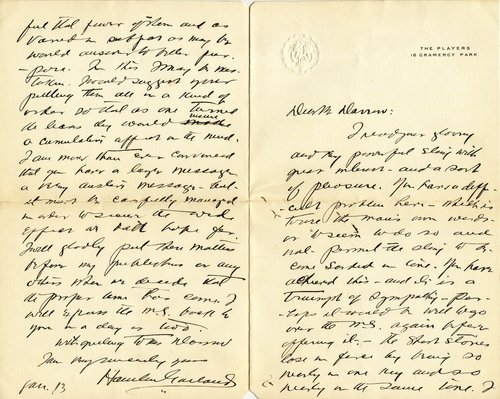 THE PLAYERS
16 GRAMERCY PARK
Dear Mr Darrow:
I read your gloomy
and very powerful story with
great interest - and a sort
of pleasure. You have a diffi-
cult problem here - which is
to use the man's own words
or to seem to do so and
not permit the story to be-
come sordid in tone. You have
achieved this - and it is a
triumph of sympathy - Per-
haps it would be well to go
over the M.S. again before
offering it. - The short stories
lose in force by being so
nearly in one key and so
nearly in the same tone. I
feel that fewer of them and as
varied in subject as may be
would answer to better pur-
pose. In this I may be mis-
taken. I would suggest
putting them all in a kind of
order so that as one turned
the leaves they would
a cumulative effect on the mind.
I am more than ever convinced
that you have a large message
a very austere message - but
it must be carefully managed
in order to secure the wide
effect we both hope for.
I will gladly put the matter
before my publishers or any
others when we decide that
the proper time has come. I
will express the M.S. back to
you in a day or two.
With greeting to Mrs Darrow
I am very sincerely yours
Jan. 13 Hamlin Garland